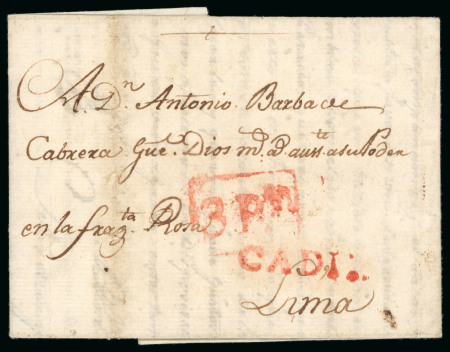 A Dn Antonio Barbade
Cabrera Gue. Dios ms. as. a su Poder
en la fragta Rosa
3 Pm
CADIZ
Lima